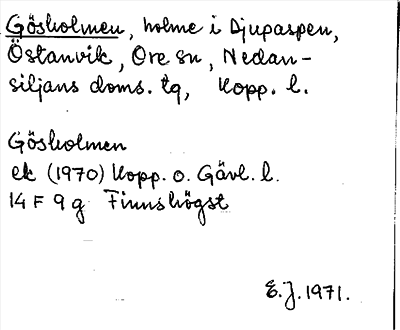 Gösholmen, holme i Djupaspen,
Östanvik, Ore sn, Nedan-
siljans doms. tg, Kopp. l.
Gösholmen
ek (1970) Kopp. o. Gävl. l.
14 F 9 g Finnshögst
E.J. 1971.